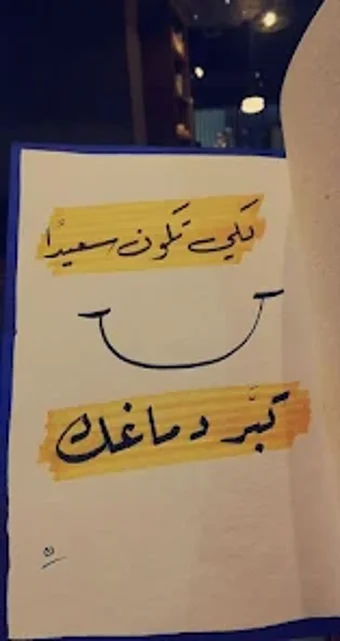 لكي تكون سعيدًا
كبّر دماغك